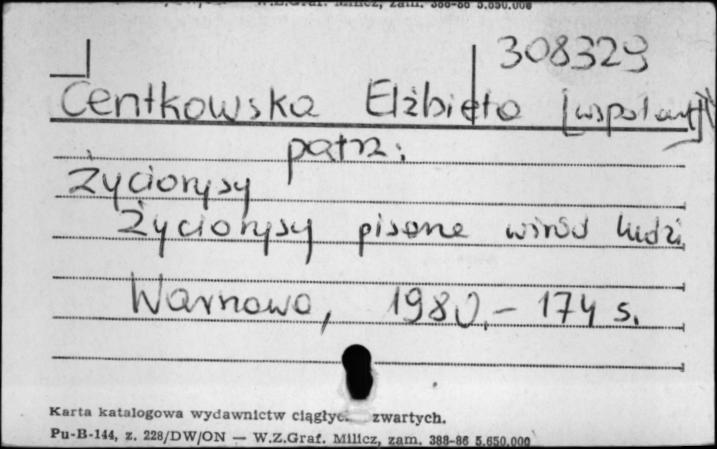 W.Z.Graf. Milicz, zam. 388-86 5.650.000
308329
Centkowska Elżbieta [współaut]
patrz:
Życiorysy
Życiorysy pisane wśród ludzi
Warszawa, 1980.- 174 s.
Karta katalogowa wydawnictw ciągłyc zwartych.
Pu-B-144, z. 228/DW/ON — W.Z.Graf. Milicz, zam. 388-86 5.650.000